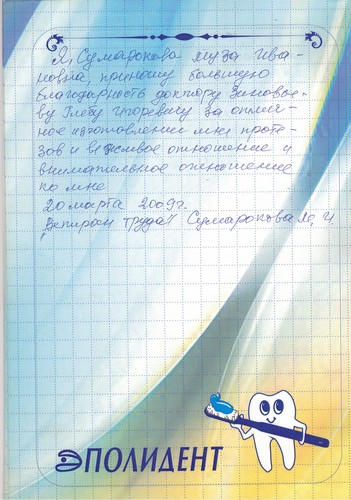 Я, Сумарокова Муза Ива-
новна, приношу большую
благодарность доктору Зиновье-
ву Глебу Игоревичу за отлич-
ное изготовление мне проте-
зов и вежливое отношение и
внимательное отношение
ко мне
20 марта 2009 г.
"Ветеран труда" Сумарокова М. И.
ПОЛИДЕНТ